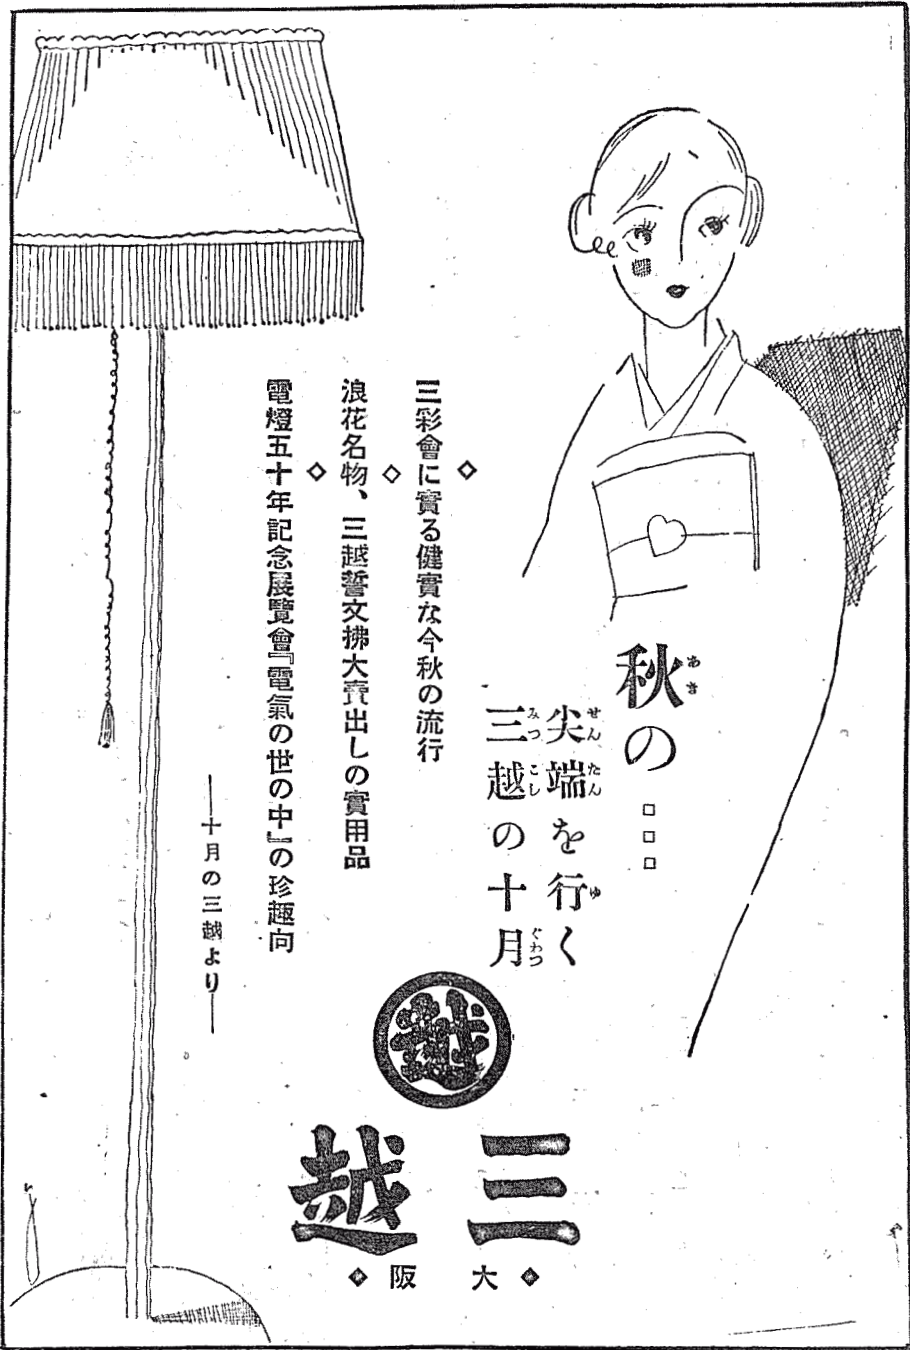 秋の□□□
尖端を行く
三越の十月
◇
三彩會に實る健實な今秋の流行
◇
浪花名物、三越誓文拂大賣出しの實用品
◇
電燈五十年記念展覽會『電氣の世の中』の珍趣向
——十月の三越より——
越
三越
◇大阪◇